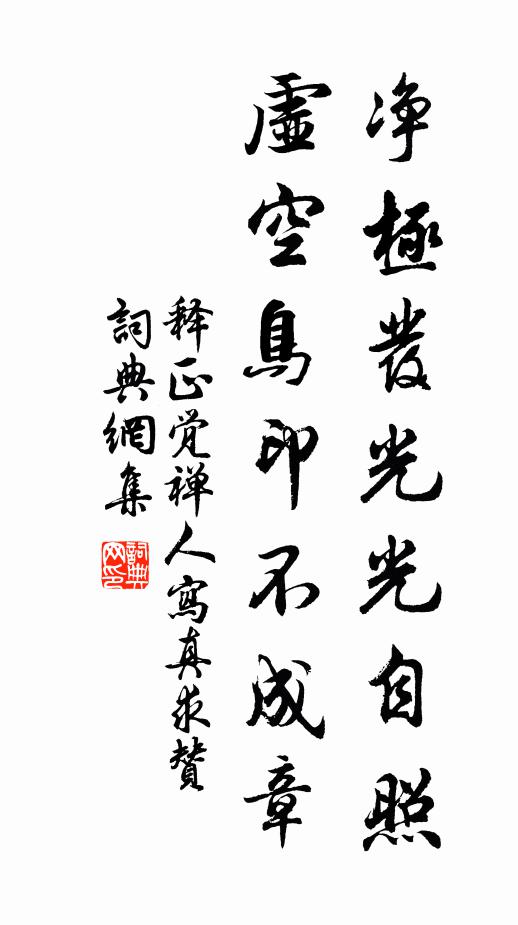 净極發光光自照
虛空鳥印不成章
释正觉禅人寫真求贊
詞典網集
詞典網印